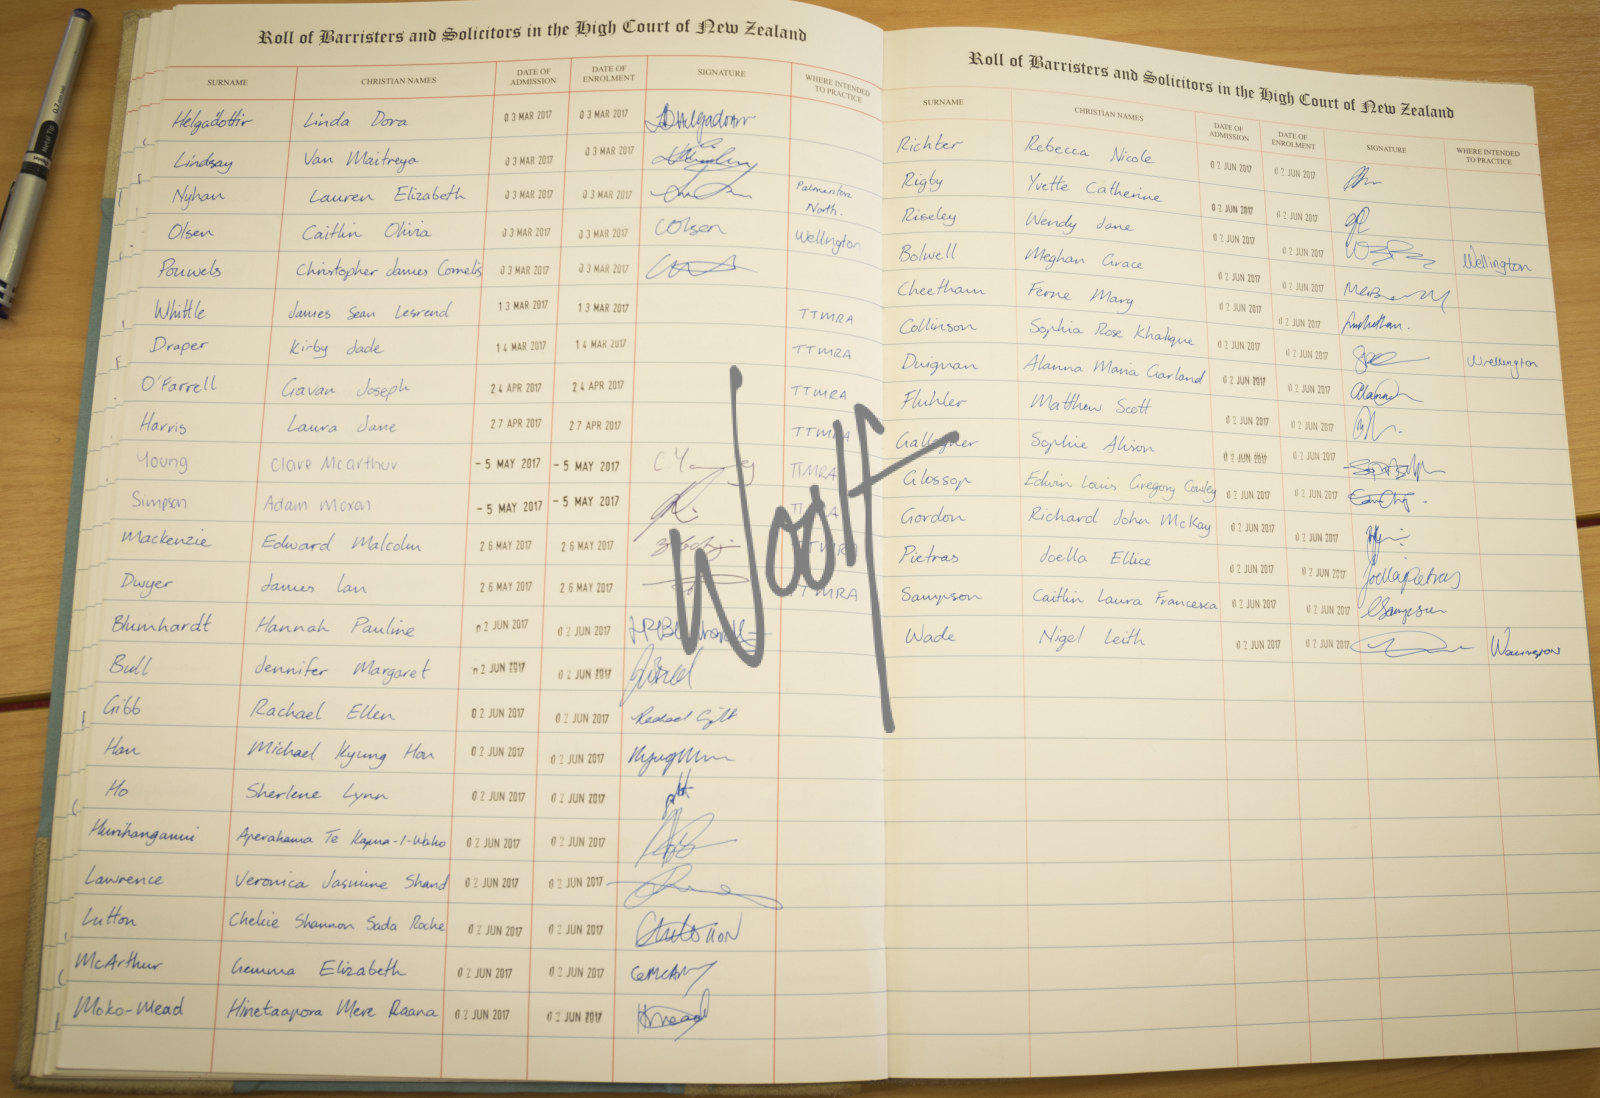 Roll of Barristers and Solicitors in the High Court of New Zealand
SURNAME CHRISTIAN NAMES DATE OF ADMISSION DATE OF ENROLMENT SIGNATURE WHERE INTENDED TO PRACTICE
Helgadottir Linda Dora 03 MAR 2017 03 MAR 2017
Lindsay Van Maitreya 03 MAR 2017 03 MAR 2017
Nyhan Lauren Elizabeth 03 MAR 2017 03 MAR 2017 Palmerston North.
Olsen Caitlin Olivia 03 MAR 2017 03 MAR 2017 COlsen Wellington
Pouwels Christopher James Cornelis 03 MAR 2017 03 MAR 2017
Whittle James Sean Lesrend 13 MAR 2017 13 MAR 2017 TTMRA
Draper Kirby Jade 14 MAR 2017 14 MAR 2017 TTMRA
O'Farrell Gavan Joseph 24 APR 2017 24 APR 2017 TTMRA
Harris Laura Jane 27 APR 2017 27 APR 2017 TTMRA
Young Clare McArthur -5 MAY 2017 -5 MAY 2017 TTMRA
Simpson Adam Moxon -5 MAY 2017 -5 MAY 2017 TTMRA
Mackenzie Edward Malcolm 26 MAY 2017 26 MAY 2017 TTMRA
Dwyer James Ian 26 MAY 2017 26 MAY 2017 TTMRA
Blumhardt Hannah Pauline 02 JUN 2017 02 JUN 2017
Bull Jennifer Margaret 02 JUN 2017 02 JUN 2017
Gibb Rachael Ellen 02 JUN 2017 02 JUN 2017
Han Michael Kyung Hon 02 JUN 2017 02 JUN 2017
Ho Sherlene Lynn 02 JUN 2017 02 JUN 2017
Hurihanganui Aperahama Te 02 JUN 2017 02 JUN 2017
Lawrence Veronica Jasmine Shand 02 JUN 2017 02 JUN 2017
Lutton Chekie Shannon Sada Roche 02 JUN 2017 02 JUN 2017
McArthur Gemma Elizabeth 02 JUN 2017 02 JUN 2017
Moko-Mead Hinetaapora Mere Raana 02 JUN 2017 02 JUN 2017
Woolf
Roll of Barristers and Solicitors in the High Court of New Zealand
SURNAME CHRISTIAN NAMES DATE OF ADMISSION DATE OF ENROLMENT SIGNATURE WHERE INTENDED TO PRACTICE
Richter Rebecca Nicole 02 JUN 2017 02 JUN 2017
Rigby Yvette Catherine 02 JUN 2017 02 JUN 2017
Riseley Wendy Jane 02 JUN 2017 02 JUN 2017 Wellington
Bolwell Meghan Grace 02 JUN 2017 02 JUN 2017
Cheetham Ferne Mary 02 JUN 2017 02 JUN 2017
Collinson Sophia Rose Khalique 02 JUN 2017 02 JUN 2017 Wellington
Duignan Alanna Maria Garland 02 JUN 2017 02 JUN 2017
Fluhler Matthew Scott 02 JUN 2017 02 JUN 2017
Gallagher Sophie Alison 02 JUN 2017 02 JUN 2017
Glossop Edwin Louis Gregory Cowley 02 JUN 2017 02 JUN 2017
Gordon Richard John McKay 02 JUN 2017 02 JUN 2017
Pietras Joella Ellice 02 JUN 2017 02 JUN 2017 JoellaPietras
Sampson Caitlin Laura Francesca 02 JUN 2017 02 JUN 2017 CSampson
Wade Nigel Leith 02 JUN 2017 02 JUN 2017